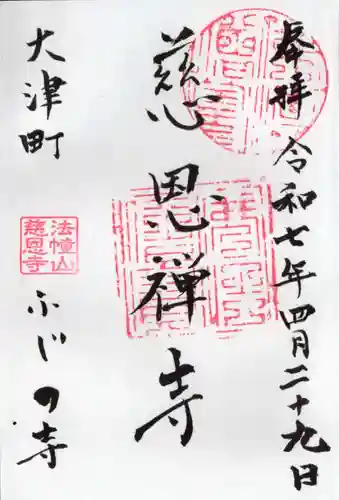 奉拝 令和七年四月二十九日
慈恩禅寺
大津町
法幢山
慈恩寺
ふじの寺